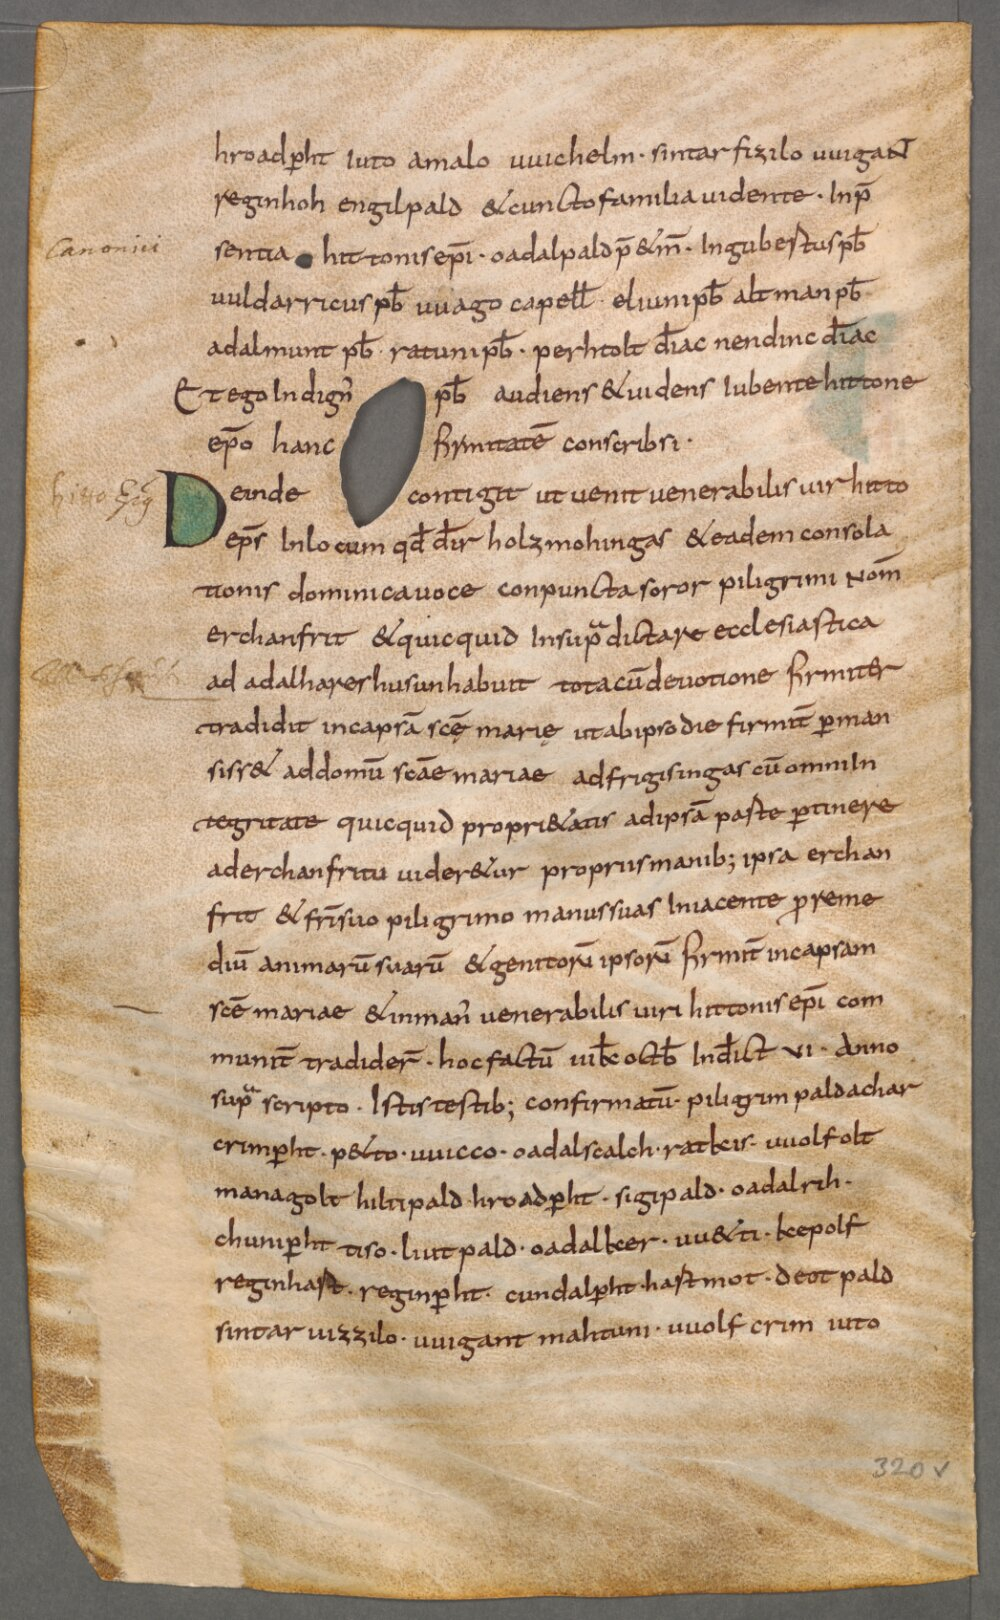 hroadp̱ht iuto amalo uuichelm · sintarfizilo uuigant
reginhoh engilpald &cunctofamiliauidente · Inp̄
Canonici
sentia hittonisep̄i · oadalpaldp̄&m̄ · Ingubestuspb̄
uuldarricuspb̄ uuago capell̄ · eliunipb̄ altmanpb̄
adalmunt pb̄ · ratunipb̄ · perhtolt d̄iac nendinc d̄iac
Et ego Indign̄ pb̄ audiens &uidens Iubente hittone
ep̄o hanc firmitatē conscribsi ·
hitto
Deinde contigit ut uenit uenerabilis uir hitto
ep̄s Inlocum qd̄ d̄ir holzmohingas &eadem consola
tionis dominicauoce conpunctasoror piligrimi Nom̄
erchanfrit &quicquid Insupͣ dictare ecclesiastica
ad adalhareshusunhabuit totacūdeuotione firmiter
tradidit incapsā scę̄ marię utabipsodie firmit̄ p̱man
siss& addomū scāe mariae adfrigisingas cūomniIn
tegritate quicquid propri&atis adipsā paste p̱tinere
aderchanfritu uider&ur propriismanib; ipsa erchan
frit &fr̄isuo piligrimo manussuas Iniacente p̱reme
diū animarūsuarū &genitorū ipsorū firmit̄ incapsam
scē mariae &inman̄ uenerabilis uiri hittonisep̄i com
munit̄ tradider̄ · hocfactū uiƚc octb̄ Ind̄ict vi · Anno
supͣ scripto · Ististestib; confirmatū · piligrim paldachar
crimp̱ht · p&to · uuicco · oadalscalch · ratkis · uuolfolt
managolt hiltipald hroadp̱ht · sigipald · oadalrih ·
chunip̱ht tiso · liutpald · oadalker · uu&ti · kepolf
reginhast · reginp̱ht · cundalp̱ht · hastmot · deotpald
sintar uizzilo · uuigant mahtuni · uuolfcrim iuto
320v